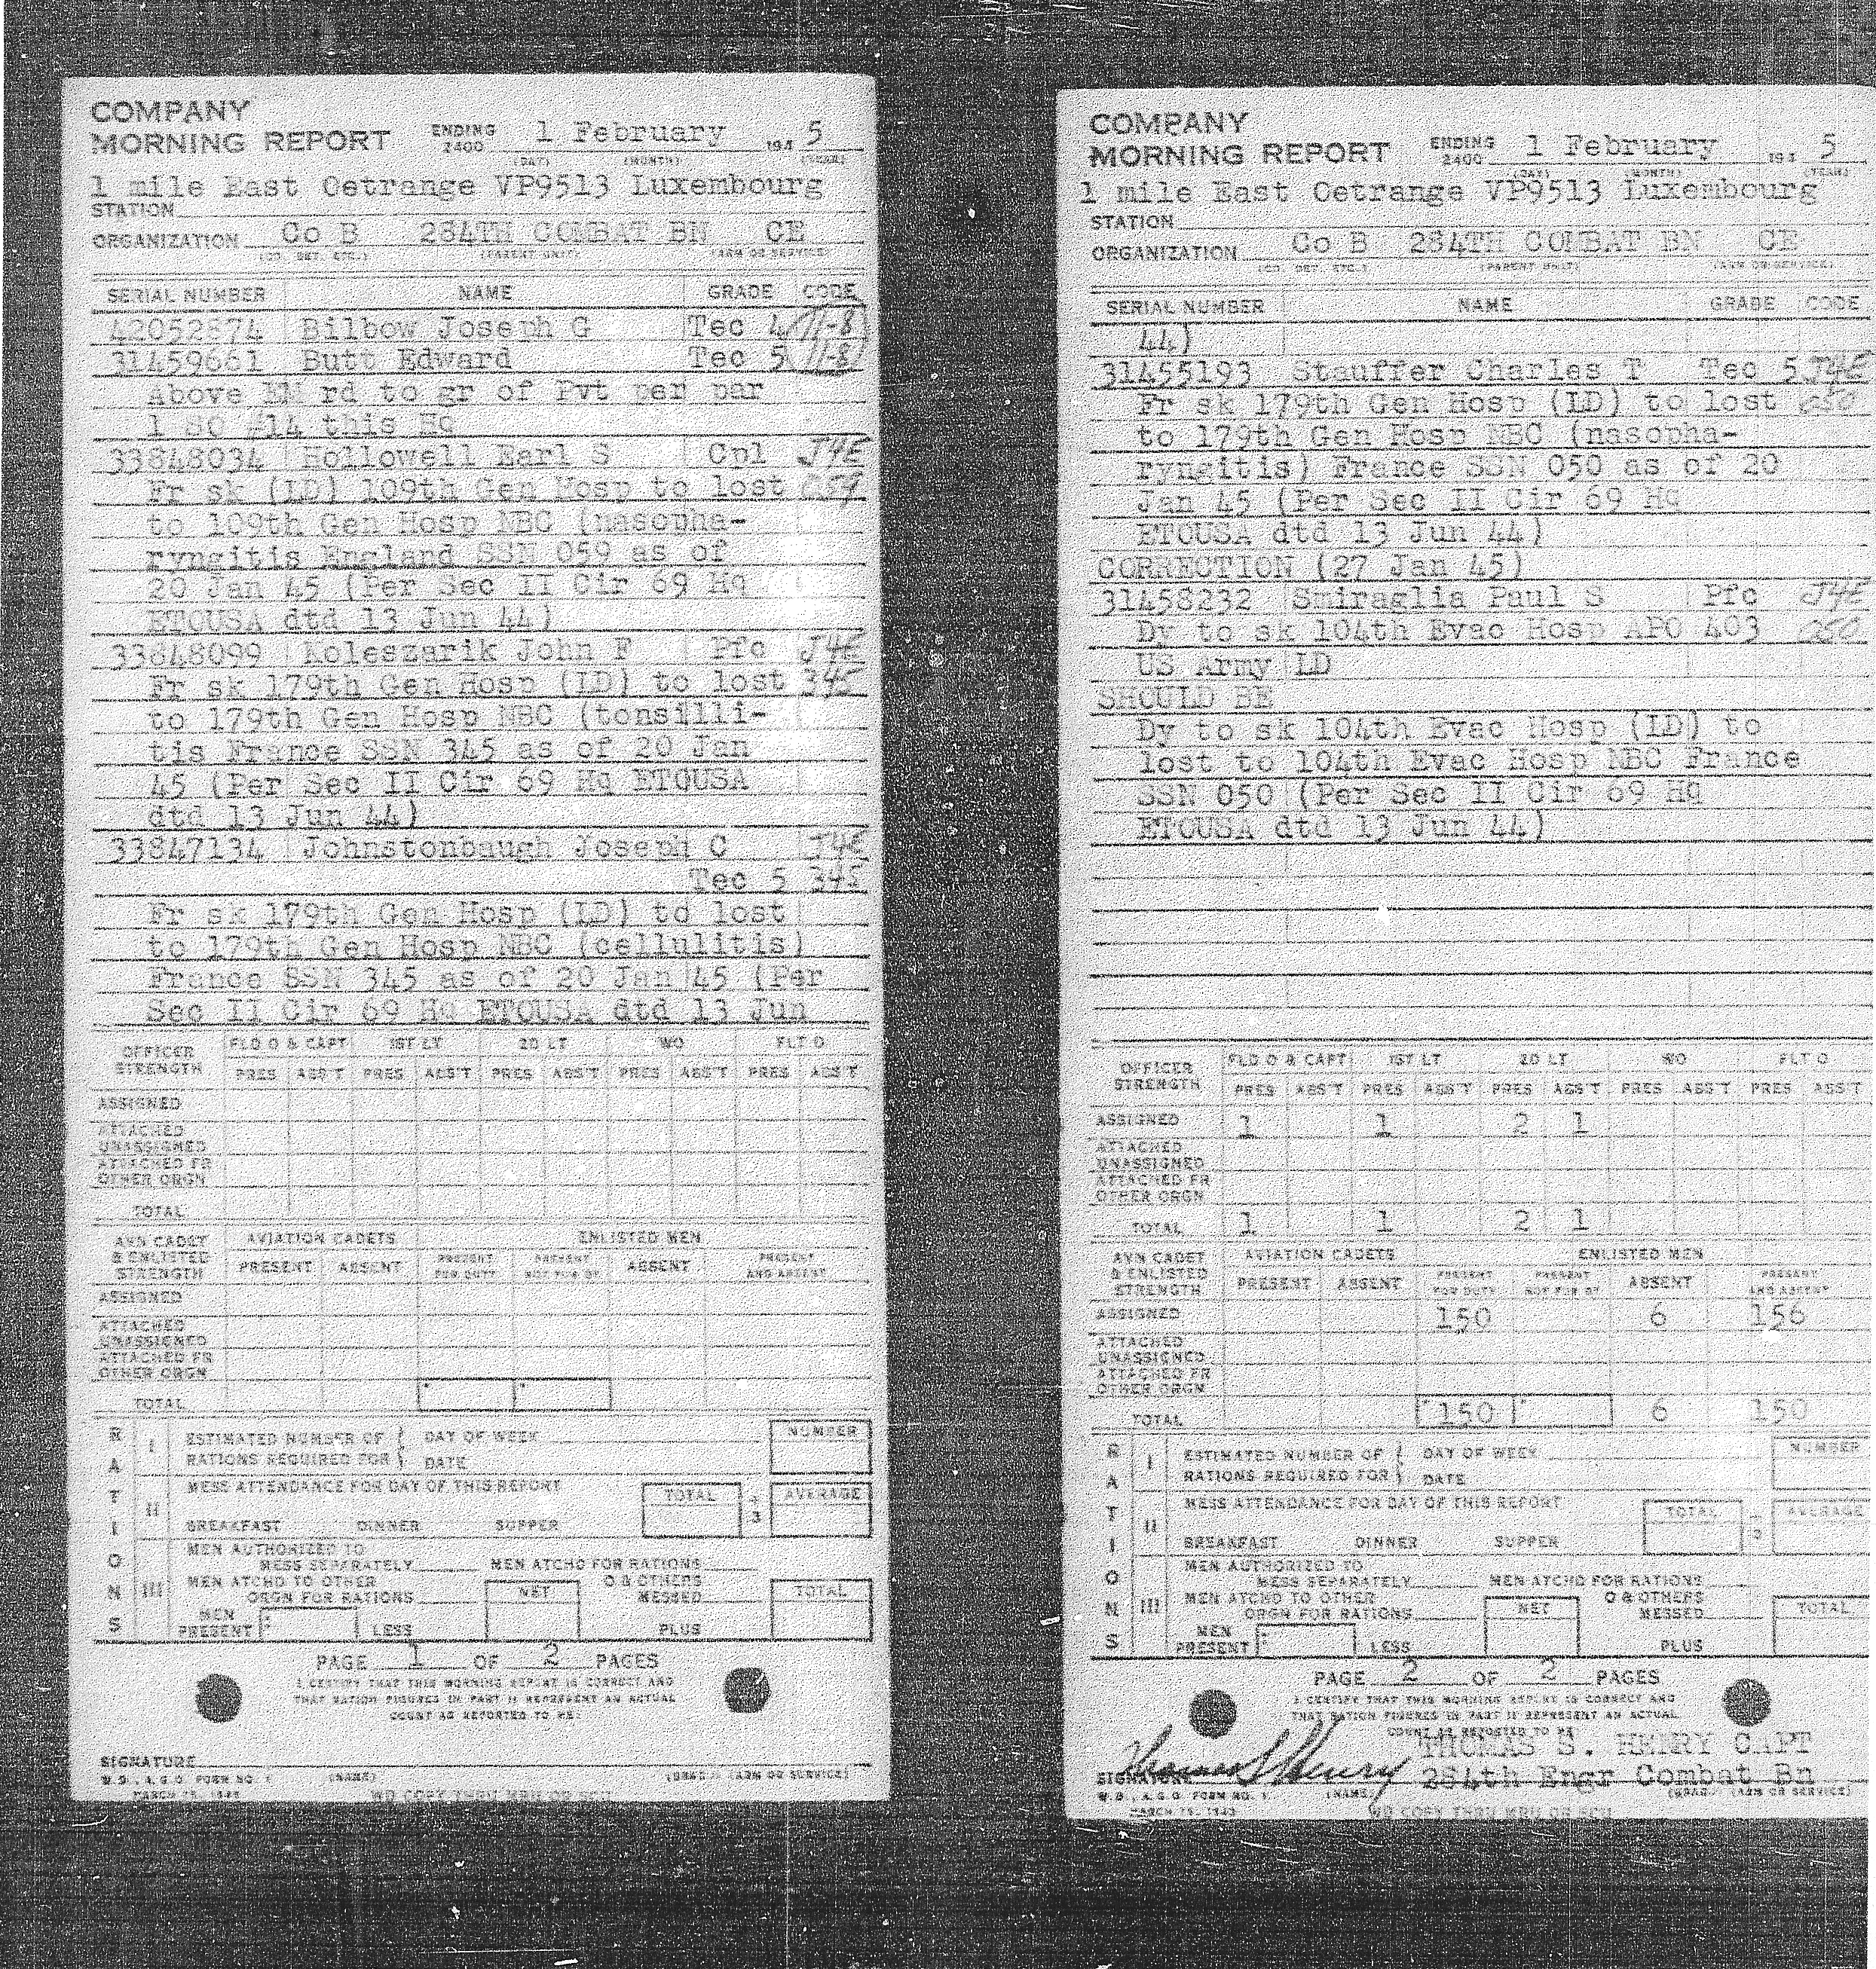 COMPANY
MORNING REPORT ENDING 2400 1 February 194 5
(DAY) (MONTH) (YEAR)
1 mile East Oetrange VP9513 Luxembourg
STATION
ORGANIZATION Co B 284TH COMBAT BN CE
(CO. DET. ETC.) (PARENT UNIT) (ARM OR SERVICE)
SERIAL NUMBER NAME GRADE CODE
42052874 Bilbow Joseph G Tec 4 11-8
31459661 Butt Edward Tec 5 11-8
Above EM rd to gr of Pvt per par
1 SO #14 this Hq
33848034 Hollowell Earl S Cpl J4E
Fr sk (LD) 109th Gen Hosp to lost 059
to 109th Gen Hosp NBC (nasopha-
ryngitis England SSN 059 as of
20 Jan 45 (Per Sec II Cir 69 Hq
ETOUSA dtd 13 Jun 44)
33848099 Koleszarik John F Pfc J4E
Fr sk 179th Gen Hosp (LD) to lost 345
to 179th Gen Hosp NBC (tonsilli-
tis France SSN 345 as of 20 Jan
45 (Per Sec II Cir 69 Hq ETOUSA
dtd 13 Jun 44)
33847134 Johnstonbaugh Joseph C J4E
Tec 5 345
Fr sk 179th Gen Hosp (LD) to lost
to 179th Gen Hosp NBC (cellulitis)
France SSN 345 as of 20 Jan 45 (Per
Sec II Cir 69 Hq ETOUSA dtd 13 Jun
OFFICER STRENGTH FLD O & CAPT 1ST LT 2D LT WO FLT O
PRES ABS'T PRES ABS'T PRES ABS'T PRES ABS'T PRES ABS'T
ASSIGNED
ATTACHED UNASSIGNED
ATTACHED FR OTHER ORGN
TOTAL
AVN CADET & ENLISTED STRENGTH AVIATION CADETS ENLISTED MEN
PRESENT ABSENT PRESENT FOR DUTY PRESENT NOT FOR DY ABSENT PRESENT AND ABSENT
ASSIGNED
ATTACHED UNASSIGNED
ATTACHED FR OTHER ORGN
TOTAL
RATIONS
I ESTIMATED NUMBER OF RATIONS REQUIRED FOR DAY OF WEEK DATE NUMBER
II MESS ATTENDANCE FOR DAY OF THIS REPORT TOTAL ÷ 3 AVERAGE
BREAKFAST DINNER SUPPER
III MEN AUTHORIZED TO MESS SEPARATELY MEN ATCHD FOR RATIONS
MEN ATCHD TO OTHER ORGN FOR RATIONS NET O & OTHERS MESSED TOTAL
MEN PRESENT LESS PLUS
PAGE 1 OF 2 PAGES
I CERTIFY THAT THIS MORNING REPORT IS CORRECT AND
THAT RATION FIGURES IN PART II REPRESENT AN ACTUAL
COUNT AS REPORTED TO ME:
SIGNATURE
W.D., A.G.O. FORM NO. 1 (NAME) (GRADE) (ARM OR SERVICE)
MARCH 15, 1943 WD COPY THRU MRU OR SCU
COMPANY
MORNING REPORT ENDING 2400 1 February 194 5
(DAY) (MONTH) (YEAR)
1 mile East Oetrange VP9513 Luxembourg
STATION
ORGANIZATION Co B 284TH COMBAT BN CE
(CO. DET. ETC.) (PARENT UNIT) (ARM OR SERVICE)
SERIAL NUMBER NAME GRADE CODE
44)
31455193 Stauffer Charles T Tec 5 J4E
Fr sk 179th Gen Hosp (LD) to lost 050
to 179th Gen Hosp NBC (nasopha-
ryngitis) France SSN 050 as of 20
Jan 45 (Per Sec II Cir 69 Hq
ETOUSA dtd 13 Jun 44)
CORRECTION (27 Jan 45)
31458232 Smiraglia Paul S Pfc J4E
Dy to sk 104th Evac Hosp APO 403 050
US Army LD
SHOULD BE
Dy to sk 104th Evac Hosp (LD) to
lost to 104th Evac Hosp NBC France
SSN 050 (Per Sec II Cir 69 Hq
ETOUSA dtd 13 Jun 44)
OFFICER STRENGTH FLD O & CAPT 1ST LT 2D LT WO FLT O
PRES ABS'T PRES ABS'T PRES ABS'T PRES ABS'T PRES ABS'T
ASSIGNED 1 1 2 1
ATTACHED UNASSIGNED
ATTACHED FR OTHER ORGN
TOTAL 1 1 2 1
AVN CADET & ENLISTED STRENGTH AVIATION CADETS ENLISTED MEN
PRESENT ABSENT PRESENT FOR DUTY PRESENT NOT FOR DY ABSENT PRESENT AND ABSENT
ASSIGNED 150 6 156
ATTACHED UNASSIGNED
ATTACHED FR OTHER ORGN
TOTAL 150 6 150
RATIONS
I ESTIMATED NUMBER OF RATIONS REQUIRED FOR DAY OF WEEK DATE NUMBER
II MESS ATTENDANCE FOR DAY OF THIS REPORT TOTAL ÷ 3 AVERAGE
BREAKFAST DINNER SUPPER
III MEN AUTHORIZED TO MESS SEPARATELY MEN ATCHD FOR RATIONS
MEN ATCHD TO OTHER ORGN FOR RATIONS NET O & OTHERS MESSED TOTAL
MEN PRESENT LESS PLUS
PAGE 2 OF 2 PAGES
I CERTIFY THAT THIS MORNING REPORT IS CORRECT AND
THAT RATION FIGURES IN PART II REPRESENT AN ACTUAL
COUNT AS REPORTED TO ME:
Thomas S Henry THOMAS S. HENRY CAPT
SIGNATURE 284th Engr Combat Bn
W.D., A.G.O. FORM NO. 1 (NAME) (GRADE) (ARM OR SERVICE)
MARCH 15, 1943 WD COPY THRU MRU OR SCU